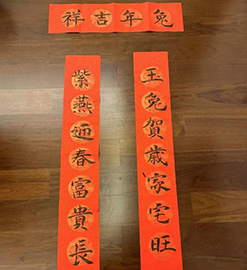 祥吉年兔
玉兔賀歲家宅旺
紫燕迎春富貴長